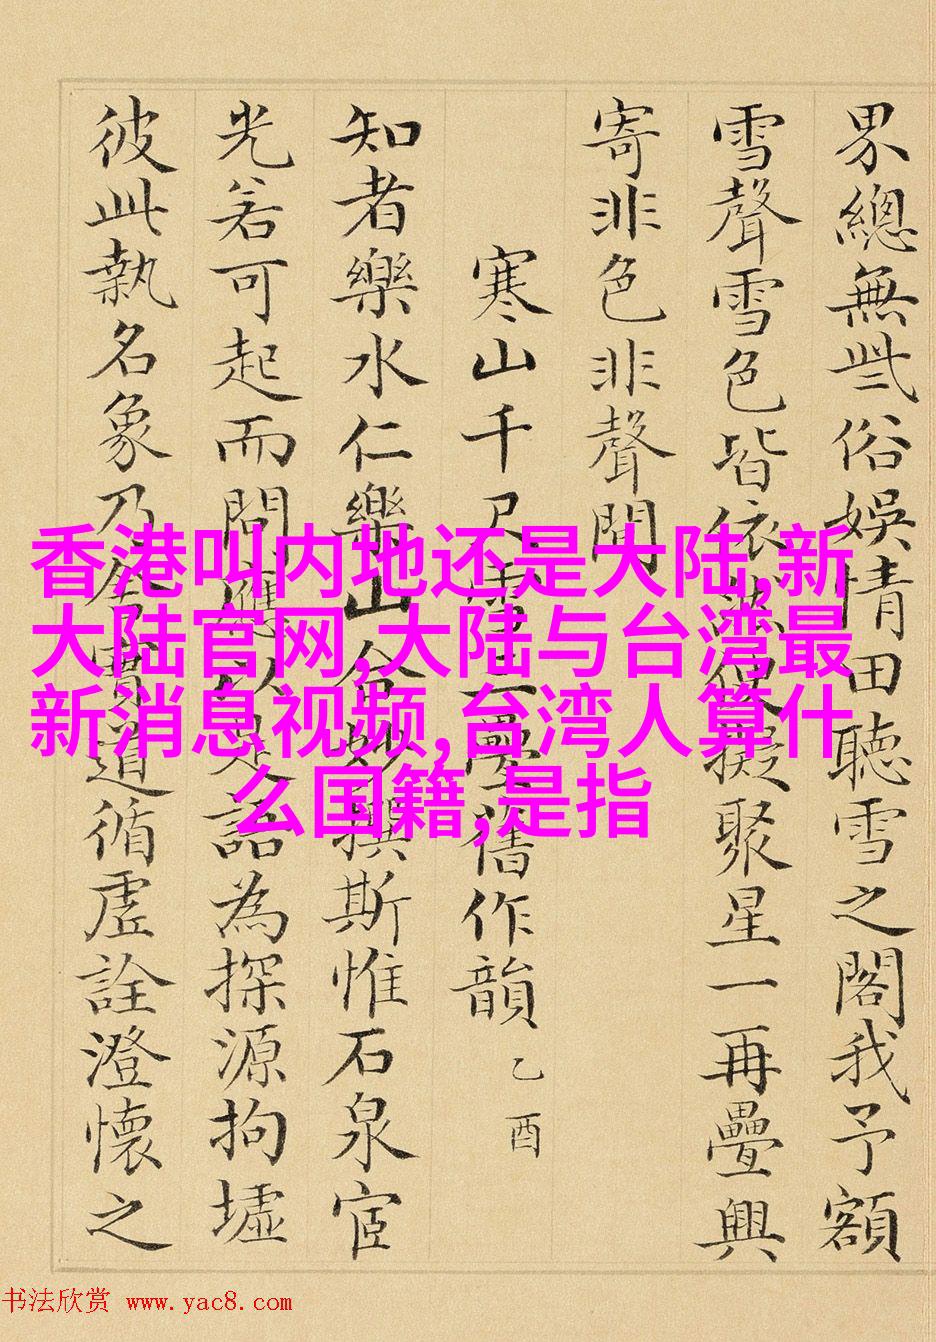 界總無些俗娛情田聽雪之閣我予額
雪聲雪色皆依擬聚星一再疊興
寄非色非聲間
寒山千尺雪三疊舊作韻 乙酉
知者樂水仁樂山合妙撰斯惟石泉宦
光若可起而問應以是語為探源拘墟
彼此執名象乃實道循虛詮澄懷之
香港叫内地还是大陆,新
大陆官网,大陆与台湾最
新消息视频,台湾人算什
么国籍,是指
书法欣赏 www.yac8.com